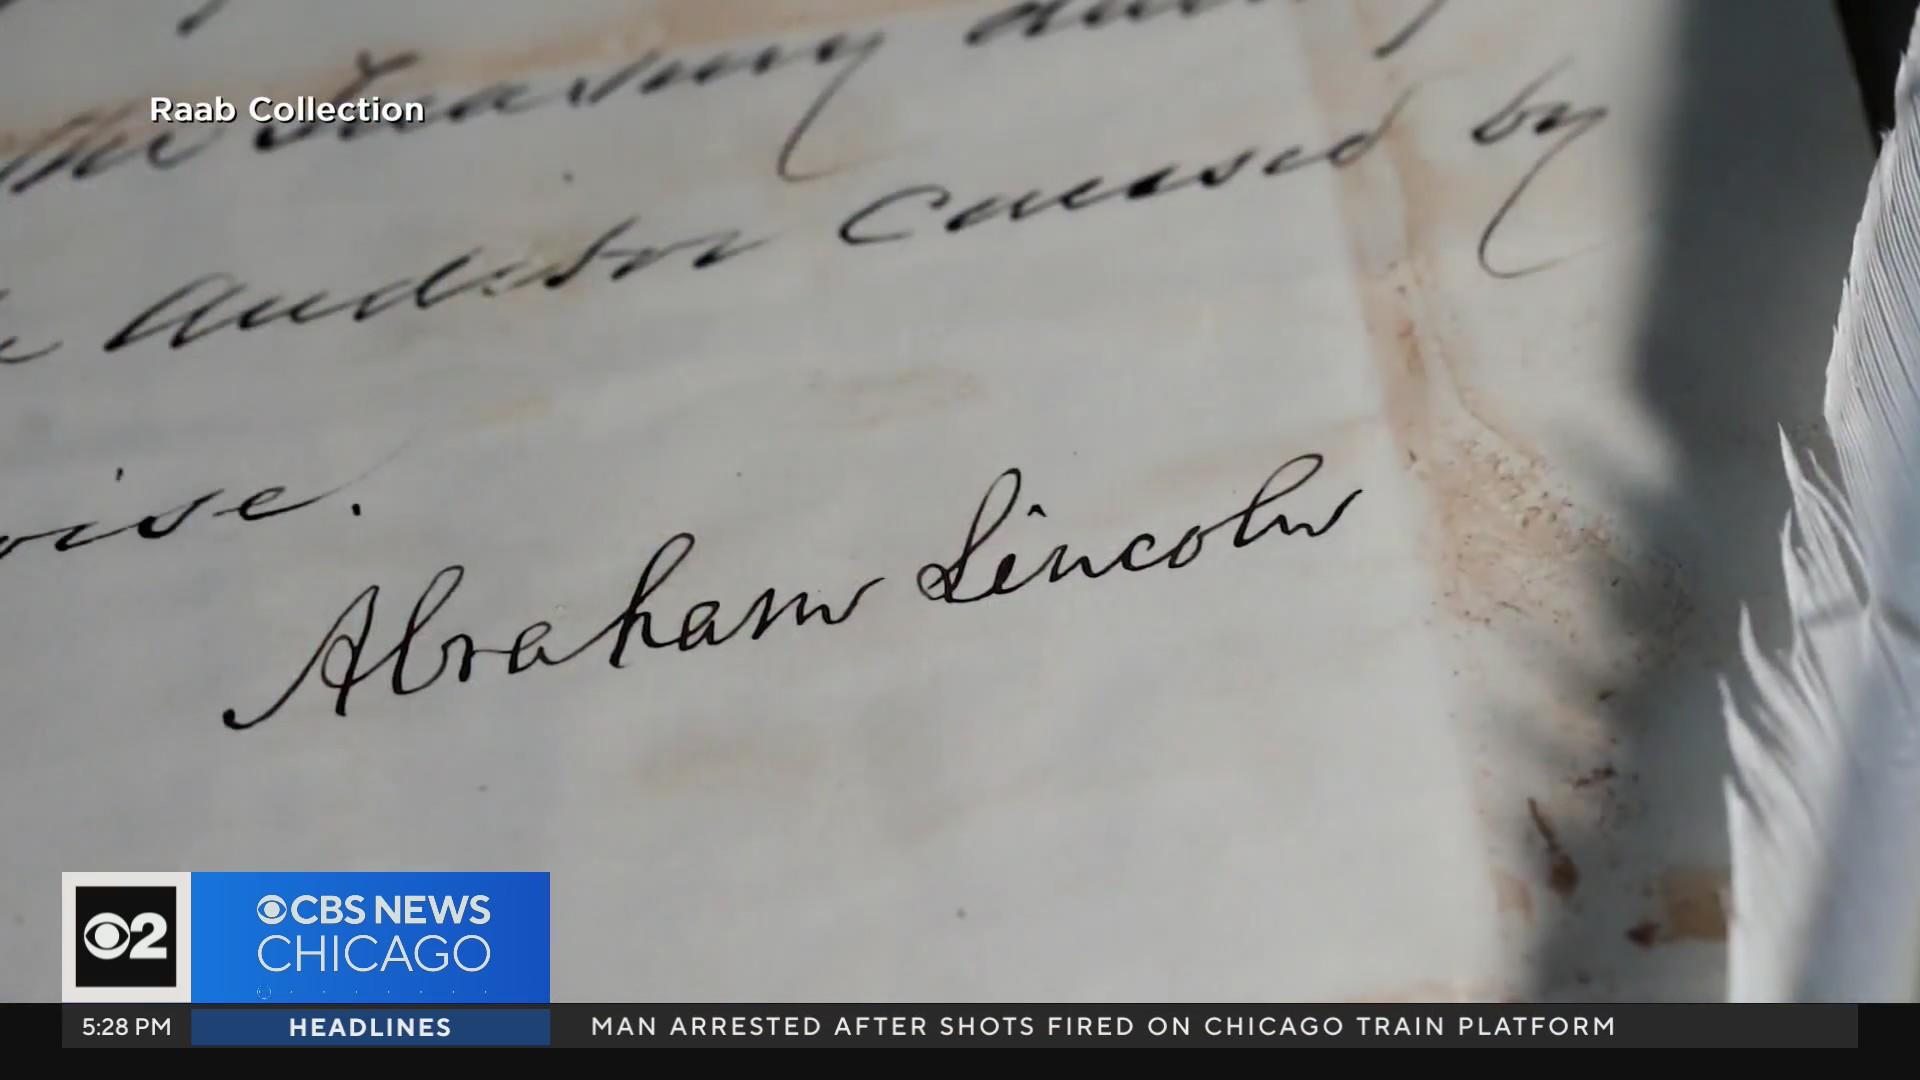 Raab Collection
the Treasury
Auditor caused by
Abraham Lincoln
2
CBS NEWS
CHICAGO
5:28 PM
HEADLINES
MAN ARRESTED AFTER SHOTS FIRED ON CHICAGO TRAIN PLATFORM